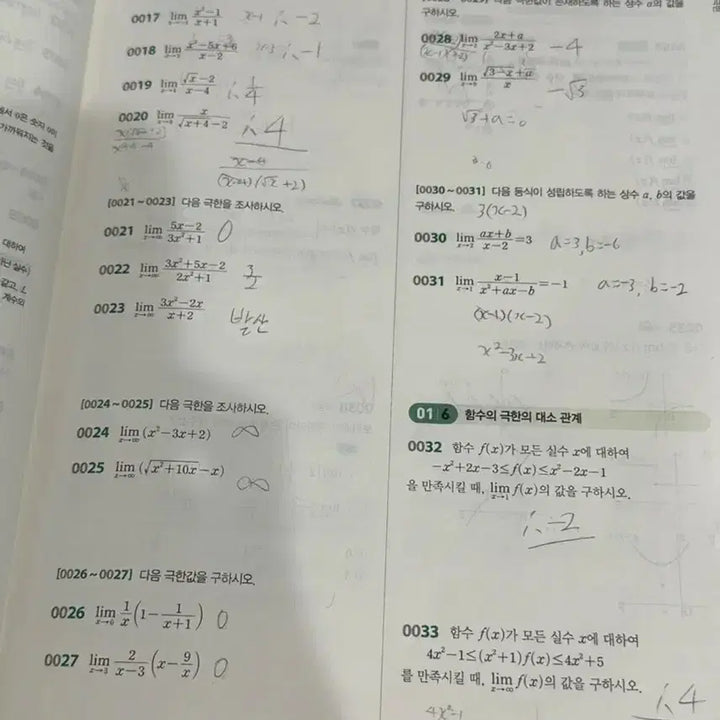 0017 lim x→-1 x²-1/x+1 ∴ -2
0018 lim x→2 x²-5x+6/x-2 ∴ -1
0019 lim x→4 √x-2/x-4 ∴ 1/4
0020 lim x→0 x/√x+4-2 ∴ 4
(√x+2)
[0021~0023] 다음 극한을 조사하시오.
0021 lim x→∞ 5x-2/3x²+1 0
0022 lim x→∞ 3x²+5x-2/2x²+1 3/2
0023 lim x→∞ 3x²-2x/x+2 발산
[0024~0025] 다음 극한을 조사하시오.
0024 lim x→∞ (x²-3x+2) ∞
0025 lim x→∞ (√x²+10x-x) ∞
[0026~0027] 다음 극한값을 구하시오.
0026 lim x→0 1/x(1-1/x+1) 0
0027 lim x→3 2/x-3(x-9/x) 0
구하시오.
0028 lim 2x+a/x²-3x+2 -4
0029 lim x→0 √3-x+a/x -√3
√3+a=0
[0030~0031] 다음 등식이 성립하도록 하는 상수 a, b의 값을
구하시오. 3(x-2)
0030 lim x→2 ax+b/x-2=3 a=3, b=-6
0031 lim x→1 x-1/x²+ax-b=-1 a=-3, b=-2
(x-1)(x-2)
x²-3x+2
01 6 함수의 극한의 대소 관계
0032 함수 f(x)가 모든 실수 x에 대하여
-x²+2x-3≤f(x)≤x²-2x-1
을 만족시킬 때, lim x→1 f(x)의 값을 구하시오.
∴ -2
0033 함수 f(x)가 모든 실수 x에 대하여
4x²-1≤(x²+1)f(x)≤4x²+5
를 만족시킬 때, lim x→∞ f(x)의 값을 구하시오.
∴ 4
4x²-1